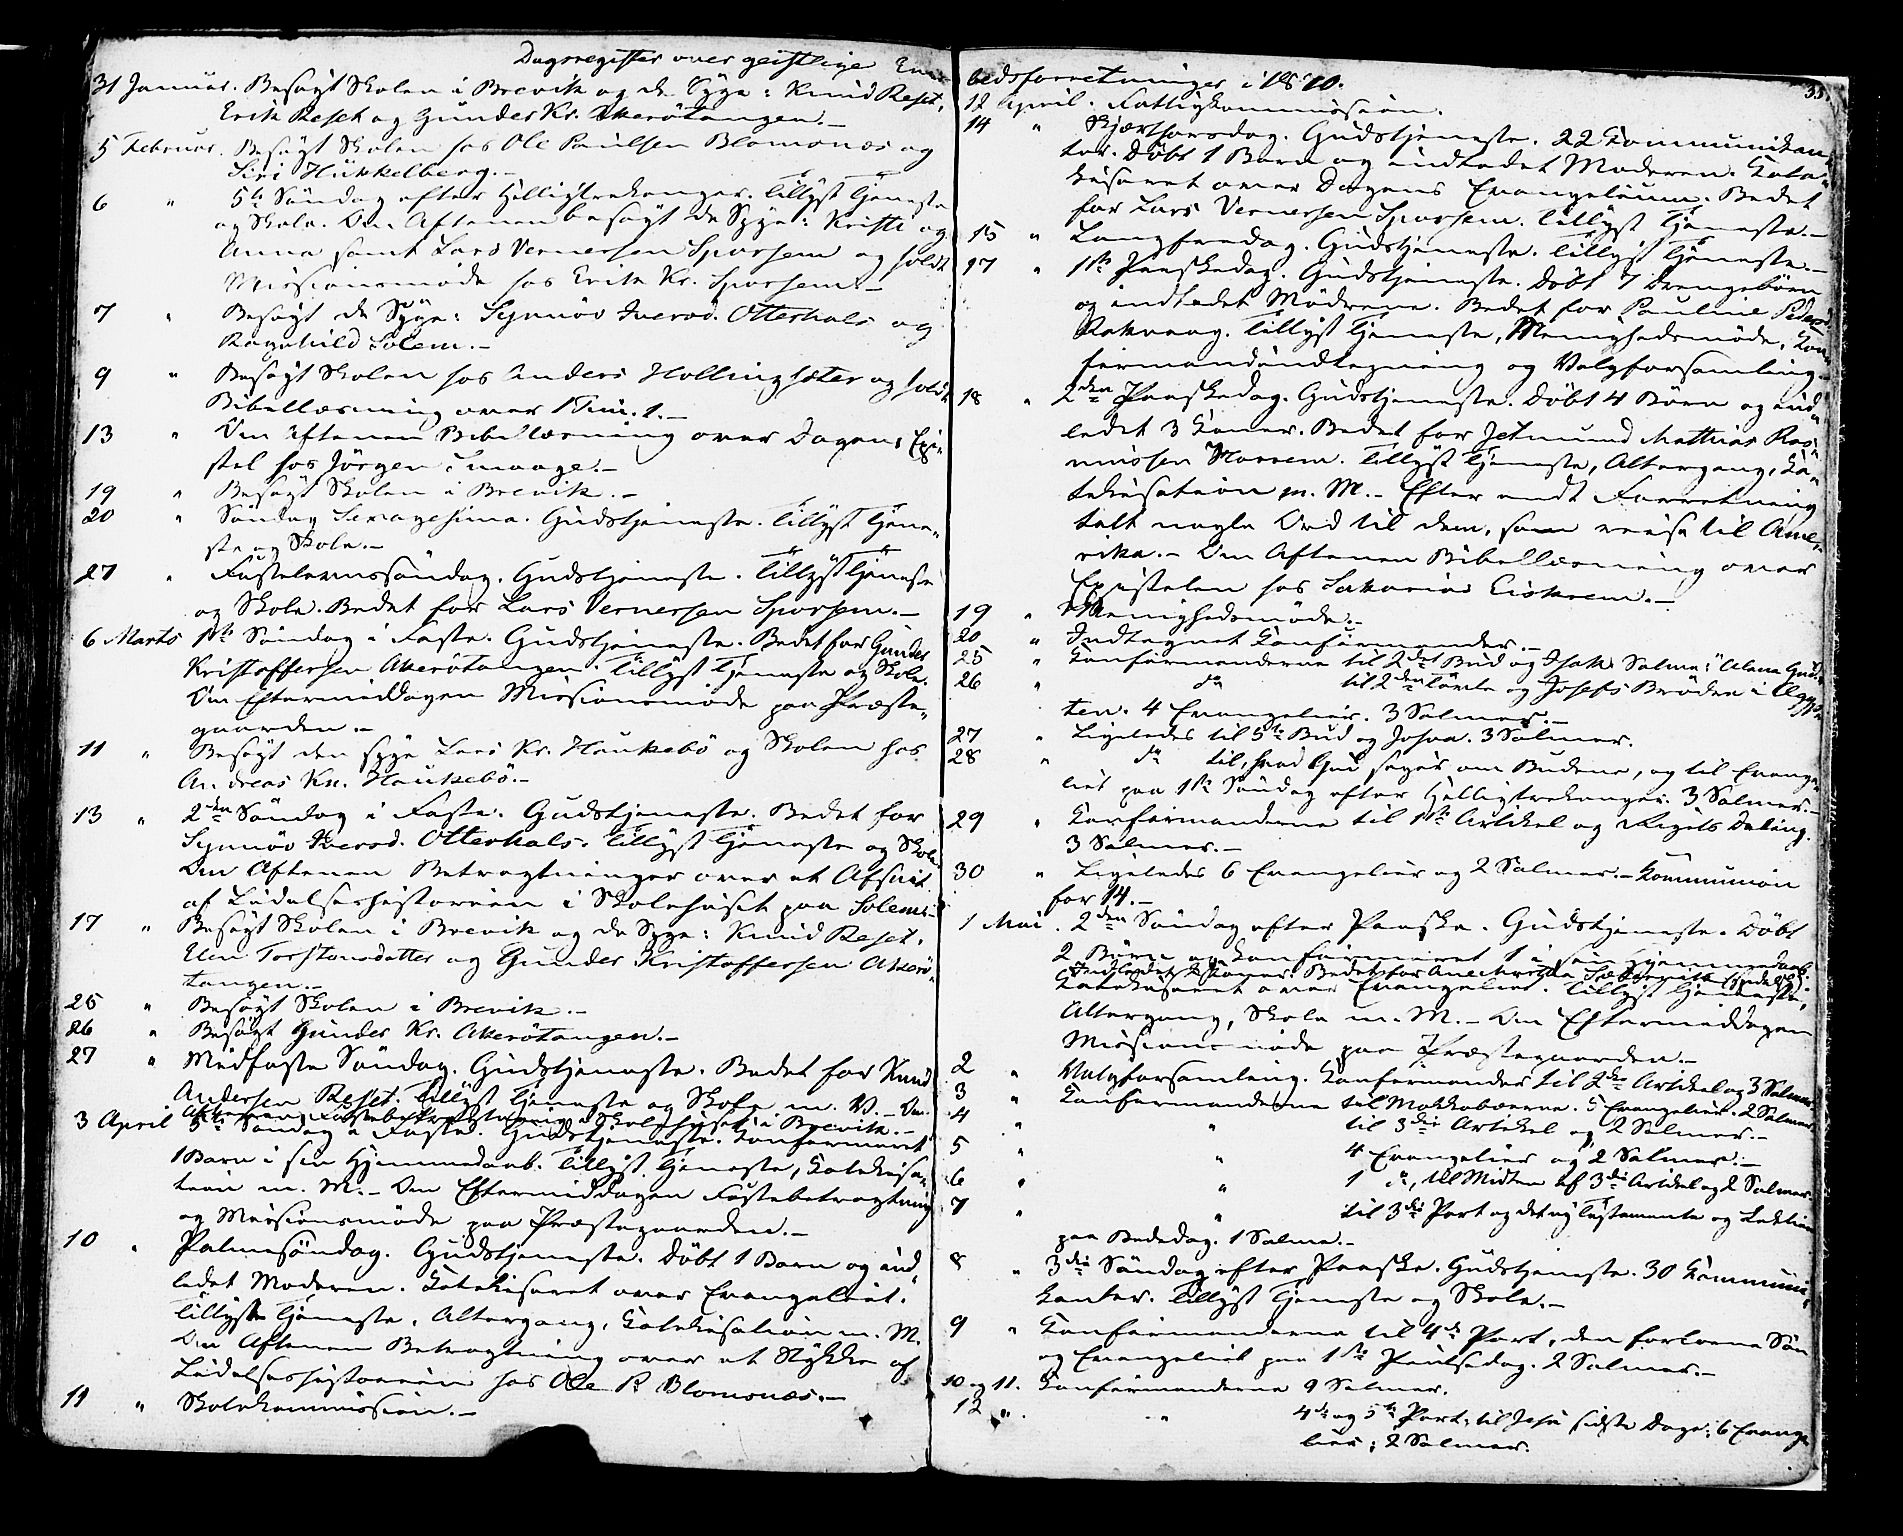 Dagsregister over geistlige Em-
31 Januar. Besøgt Skolen i Brevik og de Syge: Knud Reset,
Erik Reset og Gunder Kr. Akerötangen.-
5 Februar. Besøgt Skolen hos Ole Paulsen Blomsnæs og
Siri Hukkelberg.-
6 " 5te Söndag efter Helligtrekonger. Tillyst Tjeneste
og Skole. Om Aftenen besøgt de Syge: Kristi og
Anna samt Lars Vernersen Sporsem og holdt
Missionsmöde hos Erik Kr. Sporsem.-
7 " Besøgt de Syge: Synnöv Iverod. Otterhals og
Ragnhild Solem.-
9 " Besøgt Skolen hos Anders Hollingsæter og holdt
Bibellæsning over 1 Tim. 1.-
13 " Om Aftenen Bibellæsning over Dagens Epi-
stel hos Jörgen Smaage.-
19 " Besøgt Skolen i Brevik.-
20 " Söndag Sexagesima. Gudstjeneste. Tillyst Tjene-
ste og Skole.-
27 " Fastelavnssöndag. Gudstjeneste. Tillyst Tjeneste
og Skole. Bedet for Lars Vernersen Sporsem.-
6 Marts 1ste Söndag i Faste. Gudstjeneste. Bedet for Gunder
Kristoffersen Akerötangen. Tillyst Tjeneste og Skole.
Om Eftermiddagen Missionsmöde paa Præste-
gaarden.-
11 " Besøgt den syge Lars Kr. Haukebö og Skolen hos
Andreas Kn. Haukebö.-
13 " 2den Söndag i Faste. Gudstjeneste. Bedet for
Synnöv Iverod. Otterhals. Tillyst Tjeneste og Skole.
Om Aftenen Betragtninger over et Afsnit
af Lidelseshistorien i Skolehuset paa Solem.-
17 " Besøgt Skolen i Brevik og de Syge: Knud Reset,
Elen Torstensdatter og Gunder Kristoffersen Akerö-
tangen.-
25 " Besøgt Skolen i Brevik.-
26 " Besøgt Gunder Kr. Akerötangen.-
27 " Midfaste Söndag. Gudstjeneste. Bedet for Knud
Andersen Reset. Tillyst Tjeneste og Skole m. V.- Om
Aftenen Fastebetragtning i Skolehuset i Brevik.-
3 April 5te Söndag i Faste. Gudstjeneste. Konfirmeret
1 Barn i sin Hjemmedaab. Tillyst Tjeneste, Katekisa-
tion m. M.- Om Eftermiddagen Fastebetragtning
og Missionsmöde paa Præstegaarden.-
10 " Palmesöndag. Gudstjeneste. Döbt 1 Barn og ind-
ledet Moderen. Katekiseret over Evangeliet.
Tillyst Tjeneste, Altergang, Katekisation m. M.
Om Aftenen Betragtning over et Stykke af
Lidelseshistorien hos Ole P. Blomsnæs.-
11 " Skolekommission.-
bedsforretninger i 1870.
33.
12 April. Fattigkommission.
14 " Skjærthorsdag. Gudstjeneste. 22 Kommunikan-
ter. Döbt 1 Barn og indledet Moderen. Kate-
kiseret over Dagens Evangelium. Bedet
for Lars Vernersen Sporsem. Tillyst Tjeneste.-
15 " Langfredag. Gudstjeneste. Tillyst Tjeneste.-
17 " 1ste Paaskedag. Gudstjeneste. Döbt 7 Drengebörn
og indledet Mödrene. Bedet for Pauline Peders
Rakvaag. Tillyst Tjeneste, Menighedsmöde, Kon-
firmandindtegning og Valgforsamling.-
18 " 2den Paaskedag. Gudstjeneste. Döbt 4 Börn og ind-
ledet 3 Koner. Bedet for Jetmund Mathias Ras-
mussen Harrem. Tillyst Tjeneste, Altergang, Ka-
tekisation m. M.- Efter endt Forretning
talt nogle Ord til dem, som reise til Ame-
rika.- Om Aftenen Bibellæsning over
Epistelen hos Sakarias Eiskrem.-
19 " Menighedsmöde.-
20 " Indtegnet Konfirmander.-
25 " Konfirmanderne til 2det Bud og Isak. Salme: "Alene Gud
26 " do til 2den Tavle og Josefs Brödre i Ægyp-
ten. 4 Evangelier. 3 Salmer.-
27 " Ligeledes til 5te Bud og Josva. 3 Salmer.
28 " do til, hvad Gud siger om Budene, og til Evange-
liet paa 1ste Söndag efter Helligtrekonger. 3 Salmer.-
29 " Konfirmanderne til 1ste Artikel og Rigets Deling.
3 Salmer.-
30 " Ligeledes 6 Evangelier og 2 Salmer.- Kommunion
for 14.-
1 Mai. 2den Söndag efter Paaske. Gudstjeneste. Döbt
2 Börn og konfirmeret 1 i sin Hjemmedaab.
Indledet 2 Koner. Bedet for
Katekiseret over Evangeliet. Tillyst Tjeneste,
Altergang, Skole m. M.- Om Eftermiddagen
Missionsmöde paa Præstegaarden.-
2 " Valgforsamling. Konfirmander til 2den Artikel og 3 Salmer.
3 " Konfirmanderne til Makkabæerne. 5 Evangelier. 2 Salmer
4 " " til 3die Artikel og 2 Salmer.-
5 " 4 Evangelier og 2 Salmer.-
6 " " 1 do, til Midten af 3die Artikel og 2 Salmer.
7 " " til 3die Part og det ny Testamente og Lektien
paa Bededag. 1 Salme.-
8 " 3die Söndag efter Paaske. Gudstjeneste. 30 Kommuni-
kanter. Tillyst Tjeneste og Skole.-
9 " Konfirmanderne til 4de Part, den forlorne Sön
og Evangeliet paa 1ste Pintsedag. 2 Salmer.-
10 og 11. Konfirmanderne 9 Salmer.
12 " " 4de og 5te Part; til Jesu sidste Dage; 6 Evange-
lier; 2 Salmer.